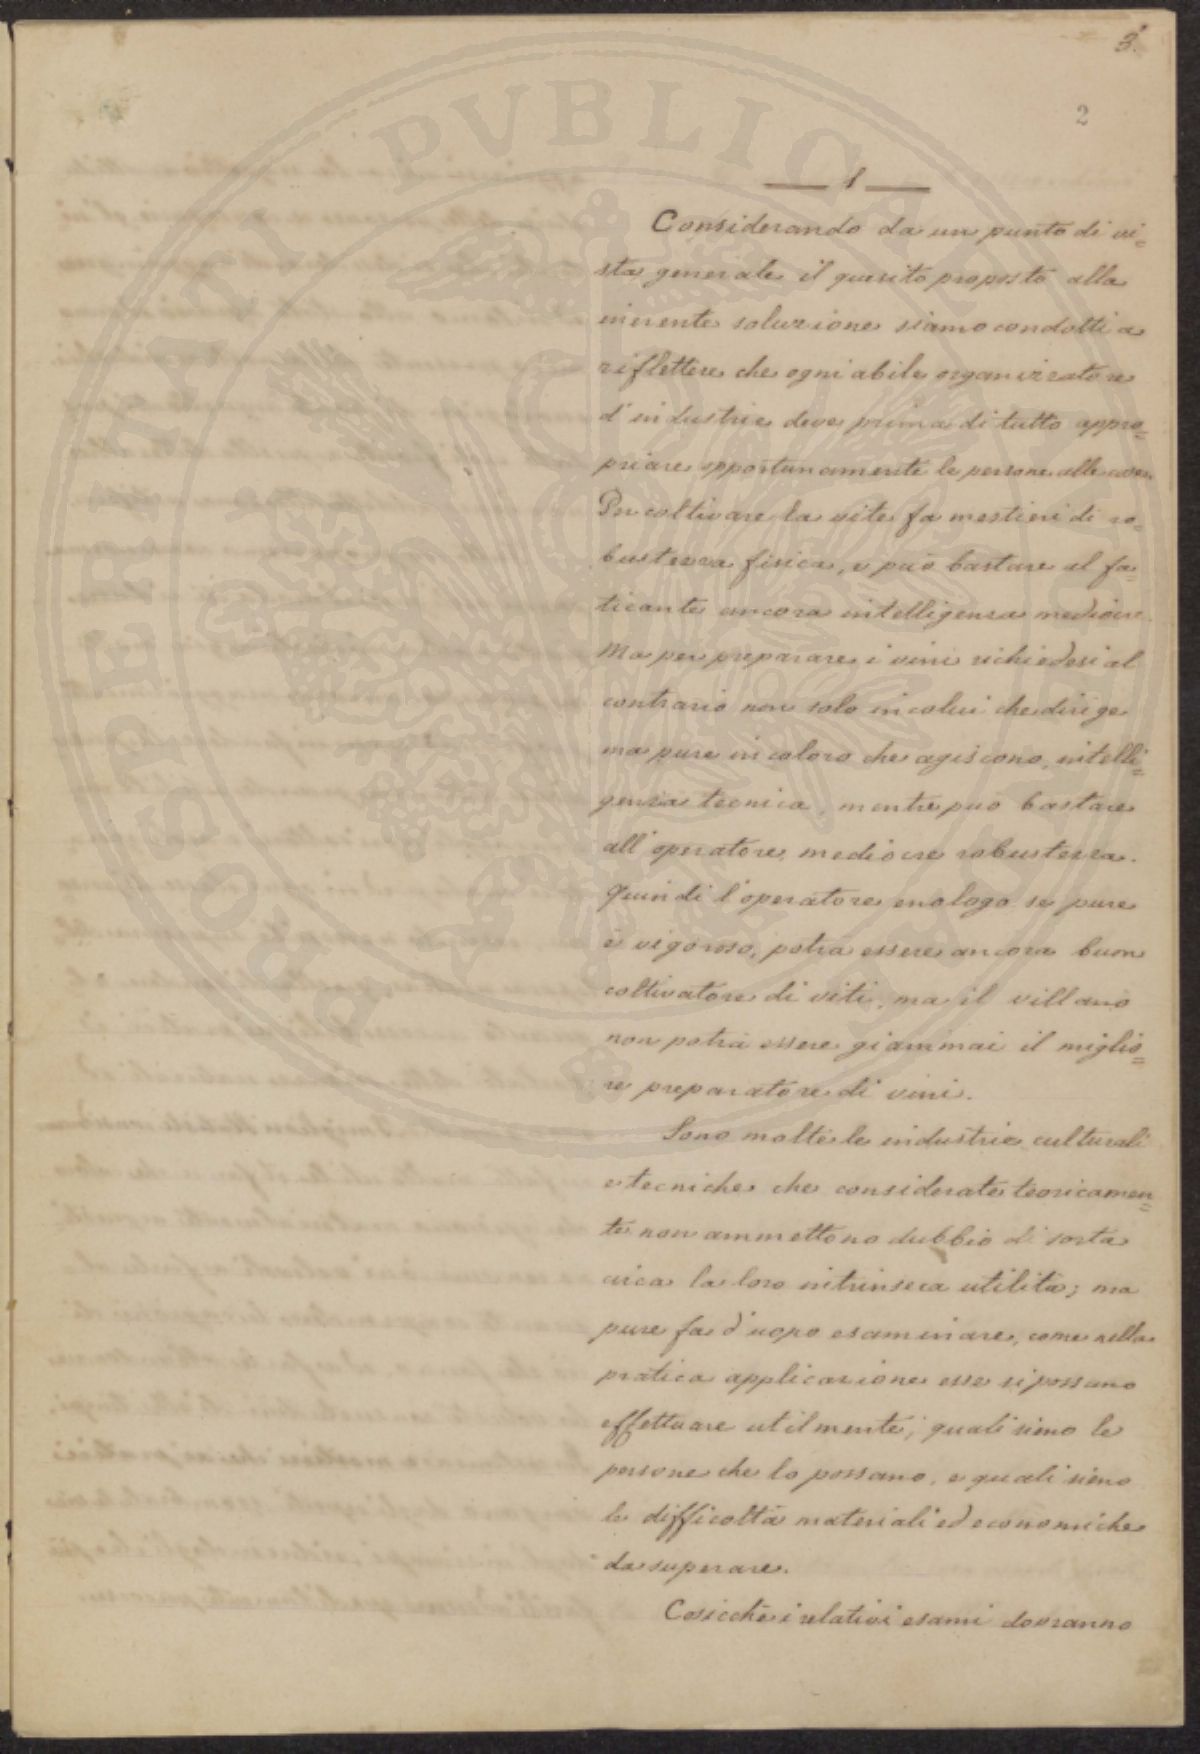 3.
2
— 1 —
Considerando da un punto di vi=
sta generale il quesito proposto alla
inerente soluzione siamo condotti a
riflettere che ogni abile organizzatore
d'industrie deve prima di tutto appro=
priare opportunamente le persone alle cose.
Per coltivare la vite fa mestieri di ro=
bustezza fisica, e può bastare al fa=
ticante ancora intelligenza mediocre.
Ma per preparare i vini richiedesi al
contrario non solo in colui che dirige
ma pure in coloro che agiscono, intelli=
genza tecnica, mentre può bastare
all'operatore mediocre robustezza.
Quindi l'operatore enologo se pure
è vigoroso, potrà essere ancora buon
coltivatore di viti, ma il villano
non potrà essere giammai il miglio=
re preparatore di vini.
Sono molte le industrie culturali
e tecniche che considerate teoricamen=
te non ammettono dubbio di sorta
circa la loro intrinseca utilità; ma
pure fa d'uopo esaminare, come nella
pratica applicazione esse si possano
effettuare utilmente; quali sieno le
persone che lo possano, e quali sieno
le difficoltà materiali ed economiche
da superare.
Cosicchè i relativi esami dovranno
PROSPERITATI PVBLICAE